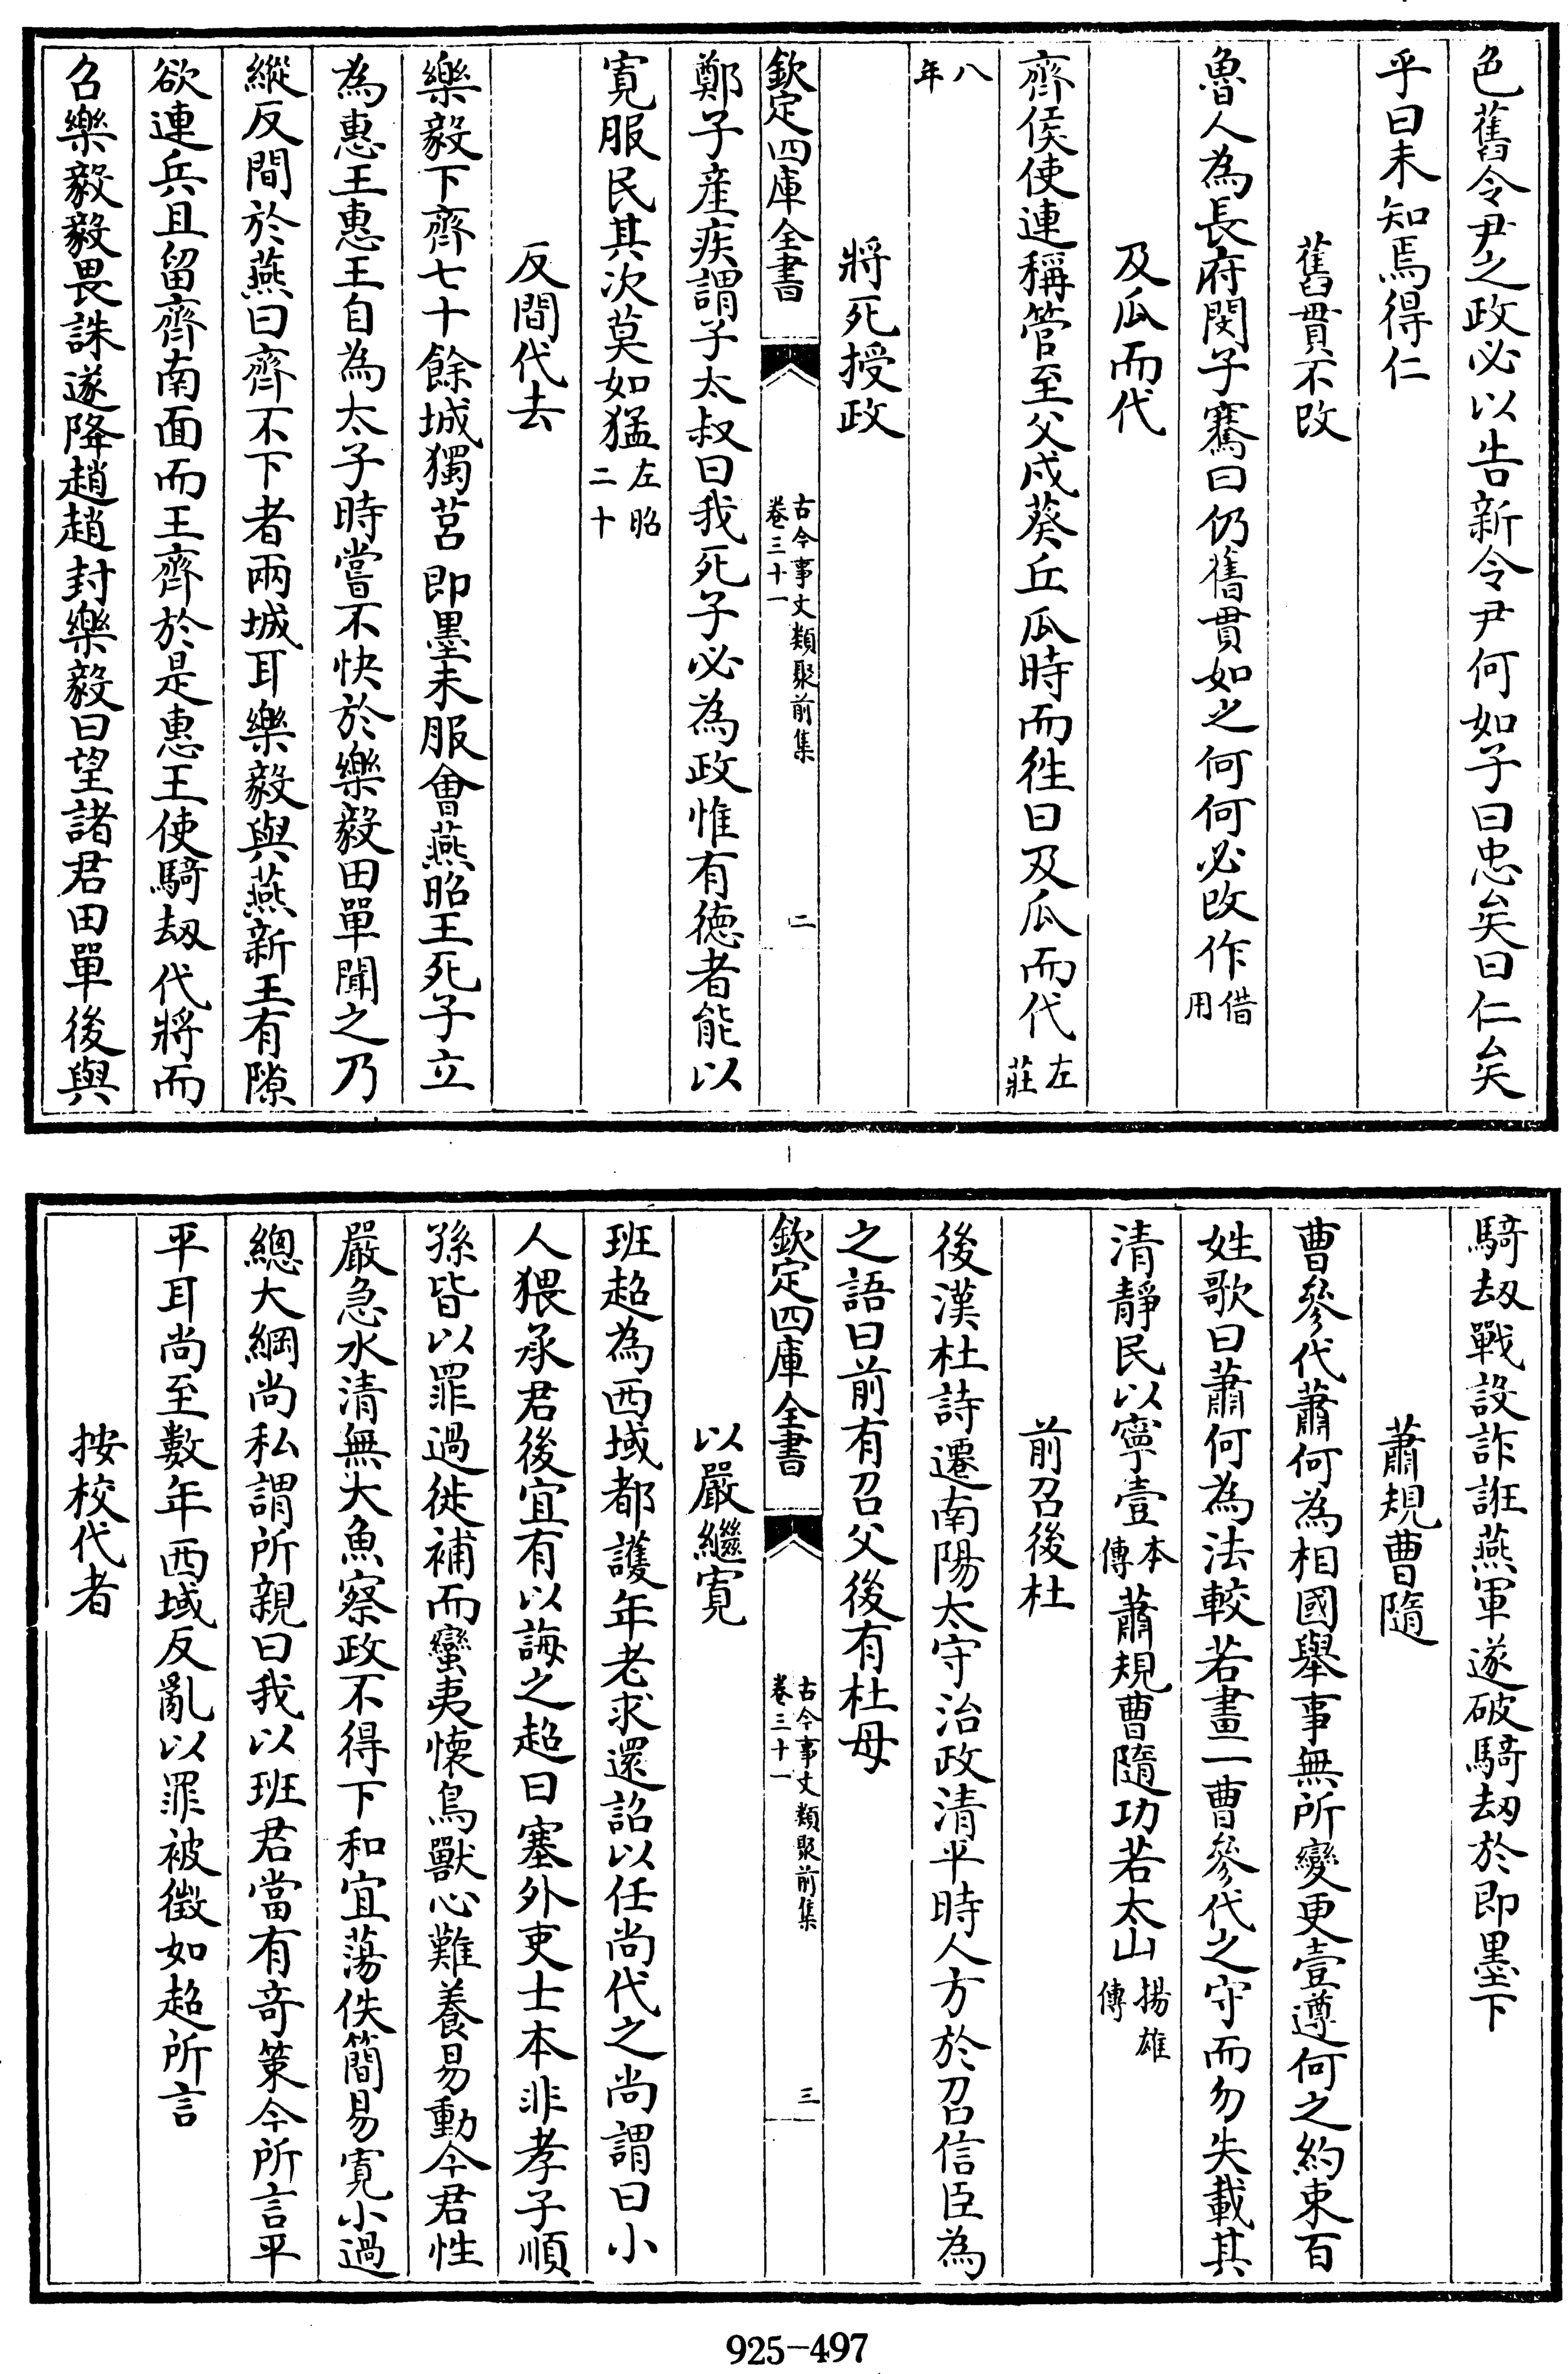 色舊令尹之政必以告新令尹何如子曰忠矣曰仁矣
乎曰未知焉得仁
舊貫不改
魯人為長府閔子騫曰仍舊貫如之何何必改作借用
及瓜而代
齊侯使連稱管至父戍葵丘瓜時而徃曰及瓜而代左莊
八年
將死授政
欽定四庫全書
古今事文類聚前集
卷三十一
二
鄭子產疾謂子太叔曰我死子必為政惟有德者能以
寛服民其次莫如猛左昭二十
反間代去
樂毅下齊七十餘城獨莒即墨未服會燕昭王死子立
為惠王惠王自為太子時嘗不快於樂毅田單聞之乃
縱反間於燕曰齊不下者兩城耳樂毅與燕新王有隙
欲連兵且留齊南面而王齊於是惠王使騎刼代將而
召樂毅毅畏誅遂降趙趙封樂毅曰望諸君田單後與
騎刼戰設詐誑燕軍遂破騎刼於即墨下
蕭規曹隨
曹參代蕭何為相國舉事無所變更壹遵何之約束百
姓歌曰蕭何為法較若畫一曹參代之守而勿失載其
清靜民以寧壹本傳蕭規曹隨功若太山揚雄傳
前召後杜
後漢杜詩遷南陽太守治政清平時人方於召信臣為
之語曰前有召父後有杜母
欽定四庫全書
古今事文類聚前集
卷三十一
三
以嚴繼寛
班超為西域都護年老求還詔以任尚代之尚謂曰小
人猥承君後宜有以誨之超曰塞外吏士本非孝子順
孫皆以罪過徙補而蠻夷懷鳥獸心難養易動今君性
嚴急水清無大魚察政不得下和宜蕩佚簡易寛小過
總大綱尚私謂所親曰我以班君當有竒策今所言平
平耳尚至數年西域反亂以罪被徵如超所言
按校代者
925-497